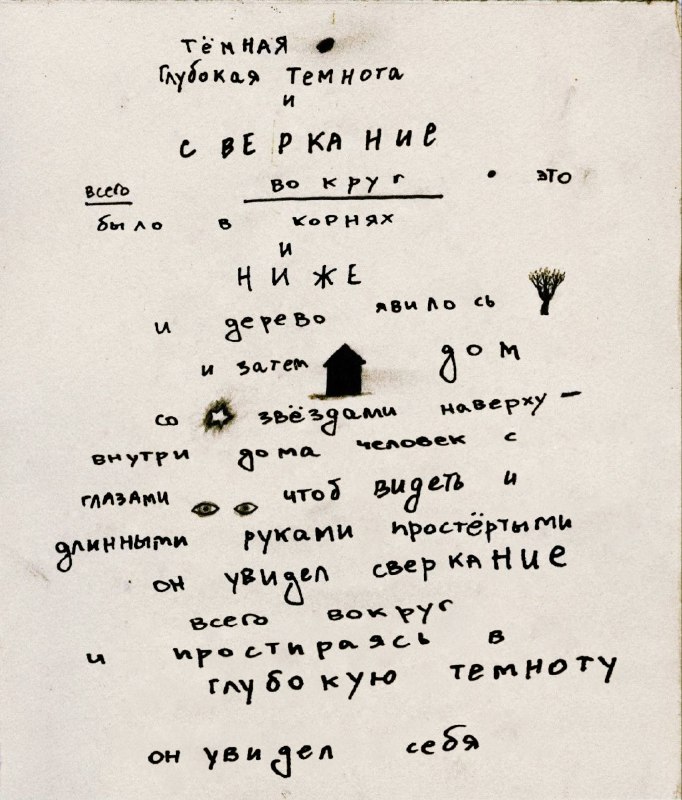 тёмная
глубокая темнота
и
СВЕРКАНИЕ
всего вокруг • это
было в корнях
и
НИЖЕ
и дерево явилось
и затем дом
со звёздами наверху –
внутри дома человек с
глазами чтоб видеть и
длинными руками простёртыми
он увидел сверкание
всего вокруг
и простираясь в
глубокую темноту
он увидел себя